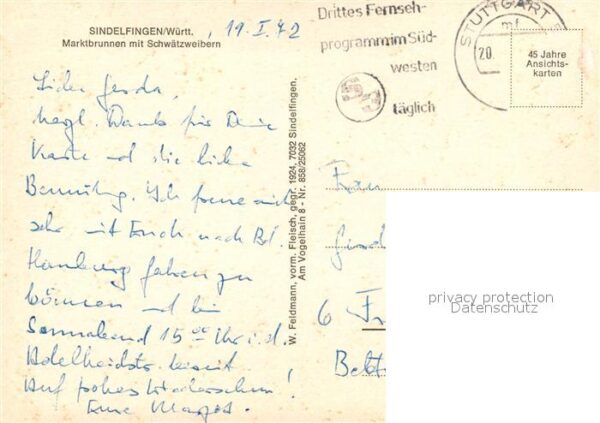 SINDELFINGEN/Württ.
Marktbrunnen mit Schwätzweibern
19.I.72
Liebe Gerda,
herzl. Dank für Deine
Karte und die liebe
Bemühung. Ich freue mich
sehr mit Euch nach Bd.
Homburg fahren zu
können und bin
Sonnabend 15 00 Uhr i. d.
Adelheidstr. bereit.
Auf frohes Wiedersehen!
Eure Margot.
W. Feldmann, vorm. Fleisch, gegr. 1924, 7032 Sindelfingen.
Am Vogelhain 8 - Nr. 858/25062
Drittes Fernseh-
programm im Süd-
westen
täglich
S3
STUTTGART
mf
20.
45 Jahre
Ansichts-
karten
Frau
6 Fr
privacy protection
Datenschutz